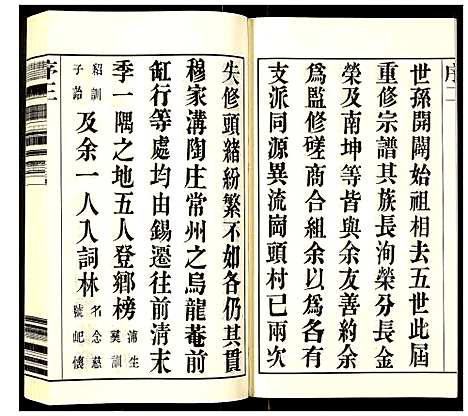 序二
世孫開闢始祖相去五世此屆
重修宗譜其族長洵榮分長金
榮及南坤等皆與余友善約余
為監修磋商合組余以為其
支派同源異流崗頭村已兩次
失修頭緒紛繁不如各仍其貫
穆家溝陶庄常州之烏龍菴前
缸行等處均由錫遷往前清末
季一隅之地五人登鄉榜蒲生奠訓
紹訓子詒及余一人入詞林名念慈號屺懷
序三